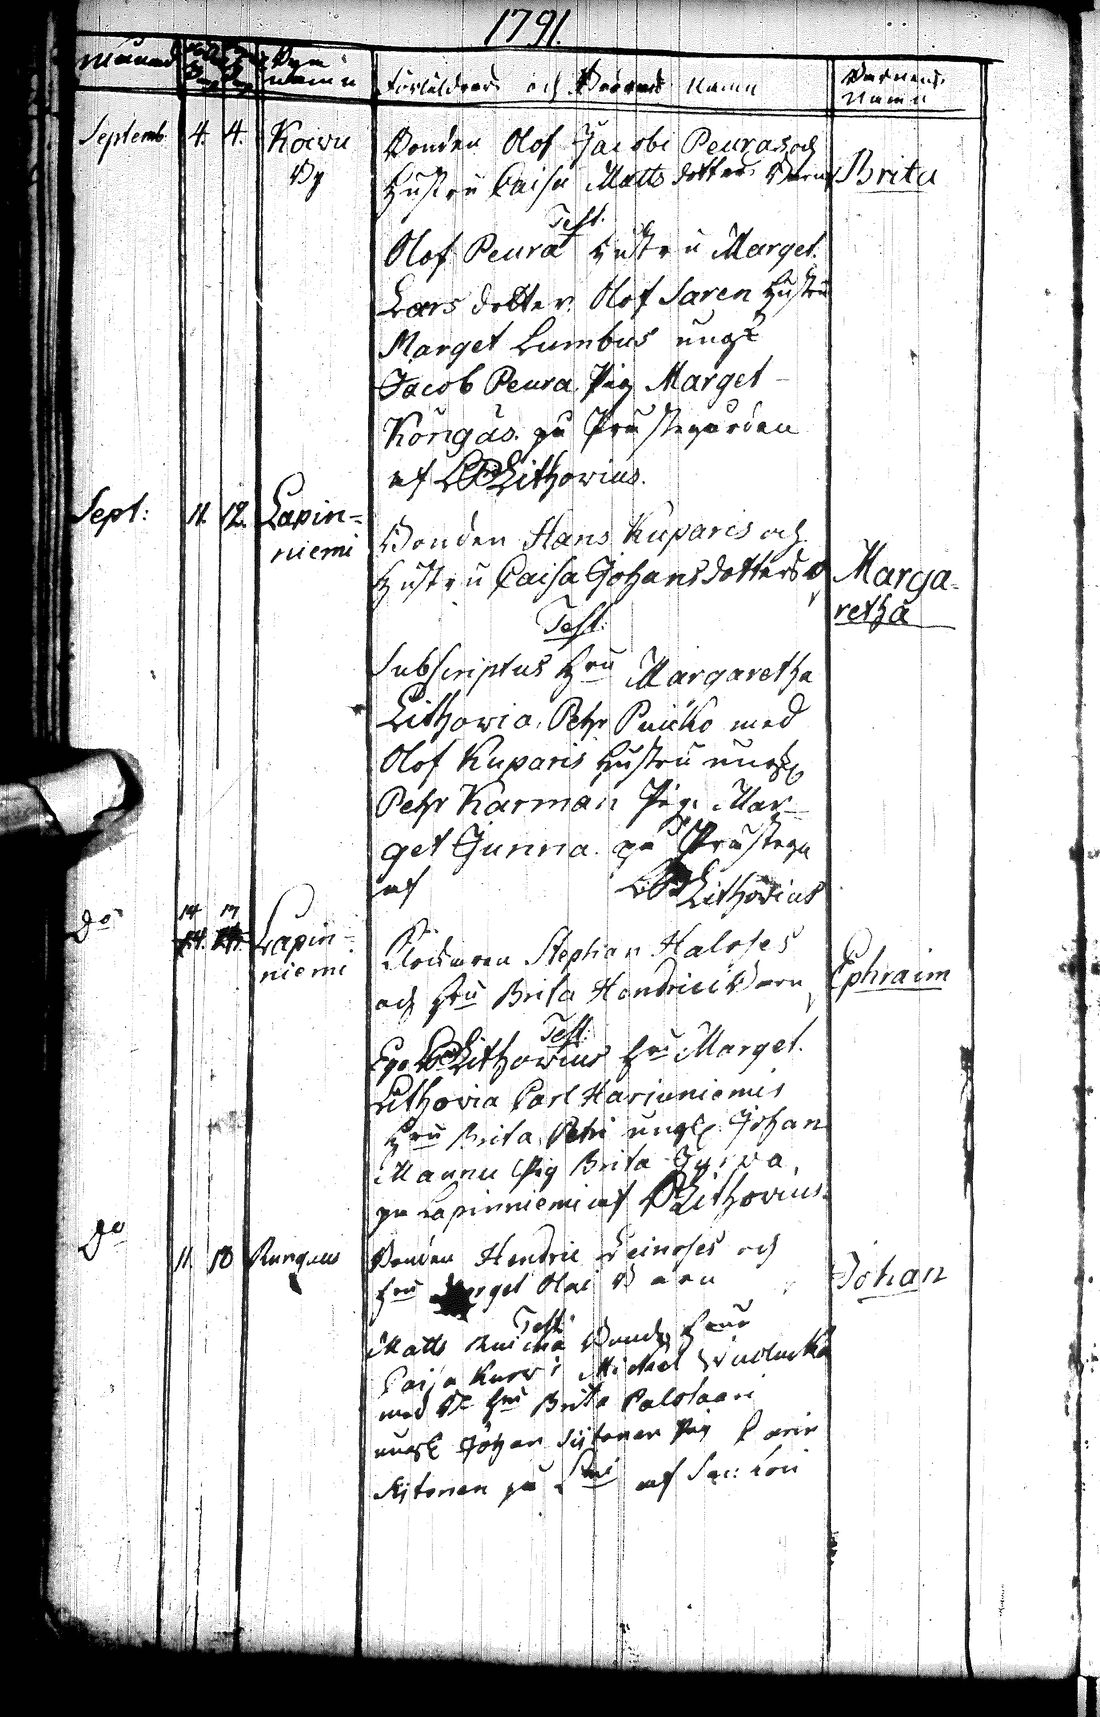 1791.
Månad Byns Namn Föräldrars och Barens Namn Barnens Namn
Septemb 4. 4. Koivu By
Bonden Olof Jacobi Peuras och
Hustru Caisa Matts dotters Barn Brita
Test.
Olof Peura Hustru Marget.
Lars dotter. Olof Saren Hustru
Marget Lumbus ungk
Jacob Peura. Pig Marget
Köngäs. på Prästegården
af Lithovius.
Sept: 11. 12. Lapin-
niemi
Bonden Hans Kuparis och
Hustru Caisa Johansdotters B Marga-
retha
Test:
Subscriptus Hru Margaretha
Lithovia. Pehr Puicko med
Olof Kuparis Hustru ungk
Pehr Karman Pig. Mar-
get Junna. på Prästega
af Lithovius
Do 14 17 Lapin-
niemi
Klockaren Stephan Haloses
och Hru Brita Hendrici Barn Ephraim
Test:
Ego Lithovius Hru Marget.
Lithovia Carl Harjuniemis
Hru Brita Petri ungk. Johan
Mannu Pig Brita
på Lapinniemi af Lithovius.
Do 11. 18
Bonden Hendric Leinoses och
Hru Marget Olai Barn Johan
Test.
Matts Bond Hru
Caisa Michel
med Hru Brita Palosaari
ungk Johan Sijtonen Pig Carin
Sijtonen på af